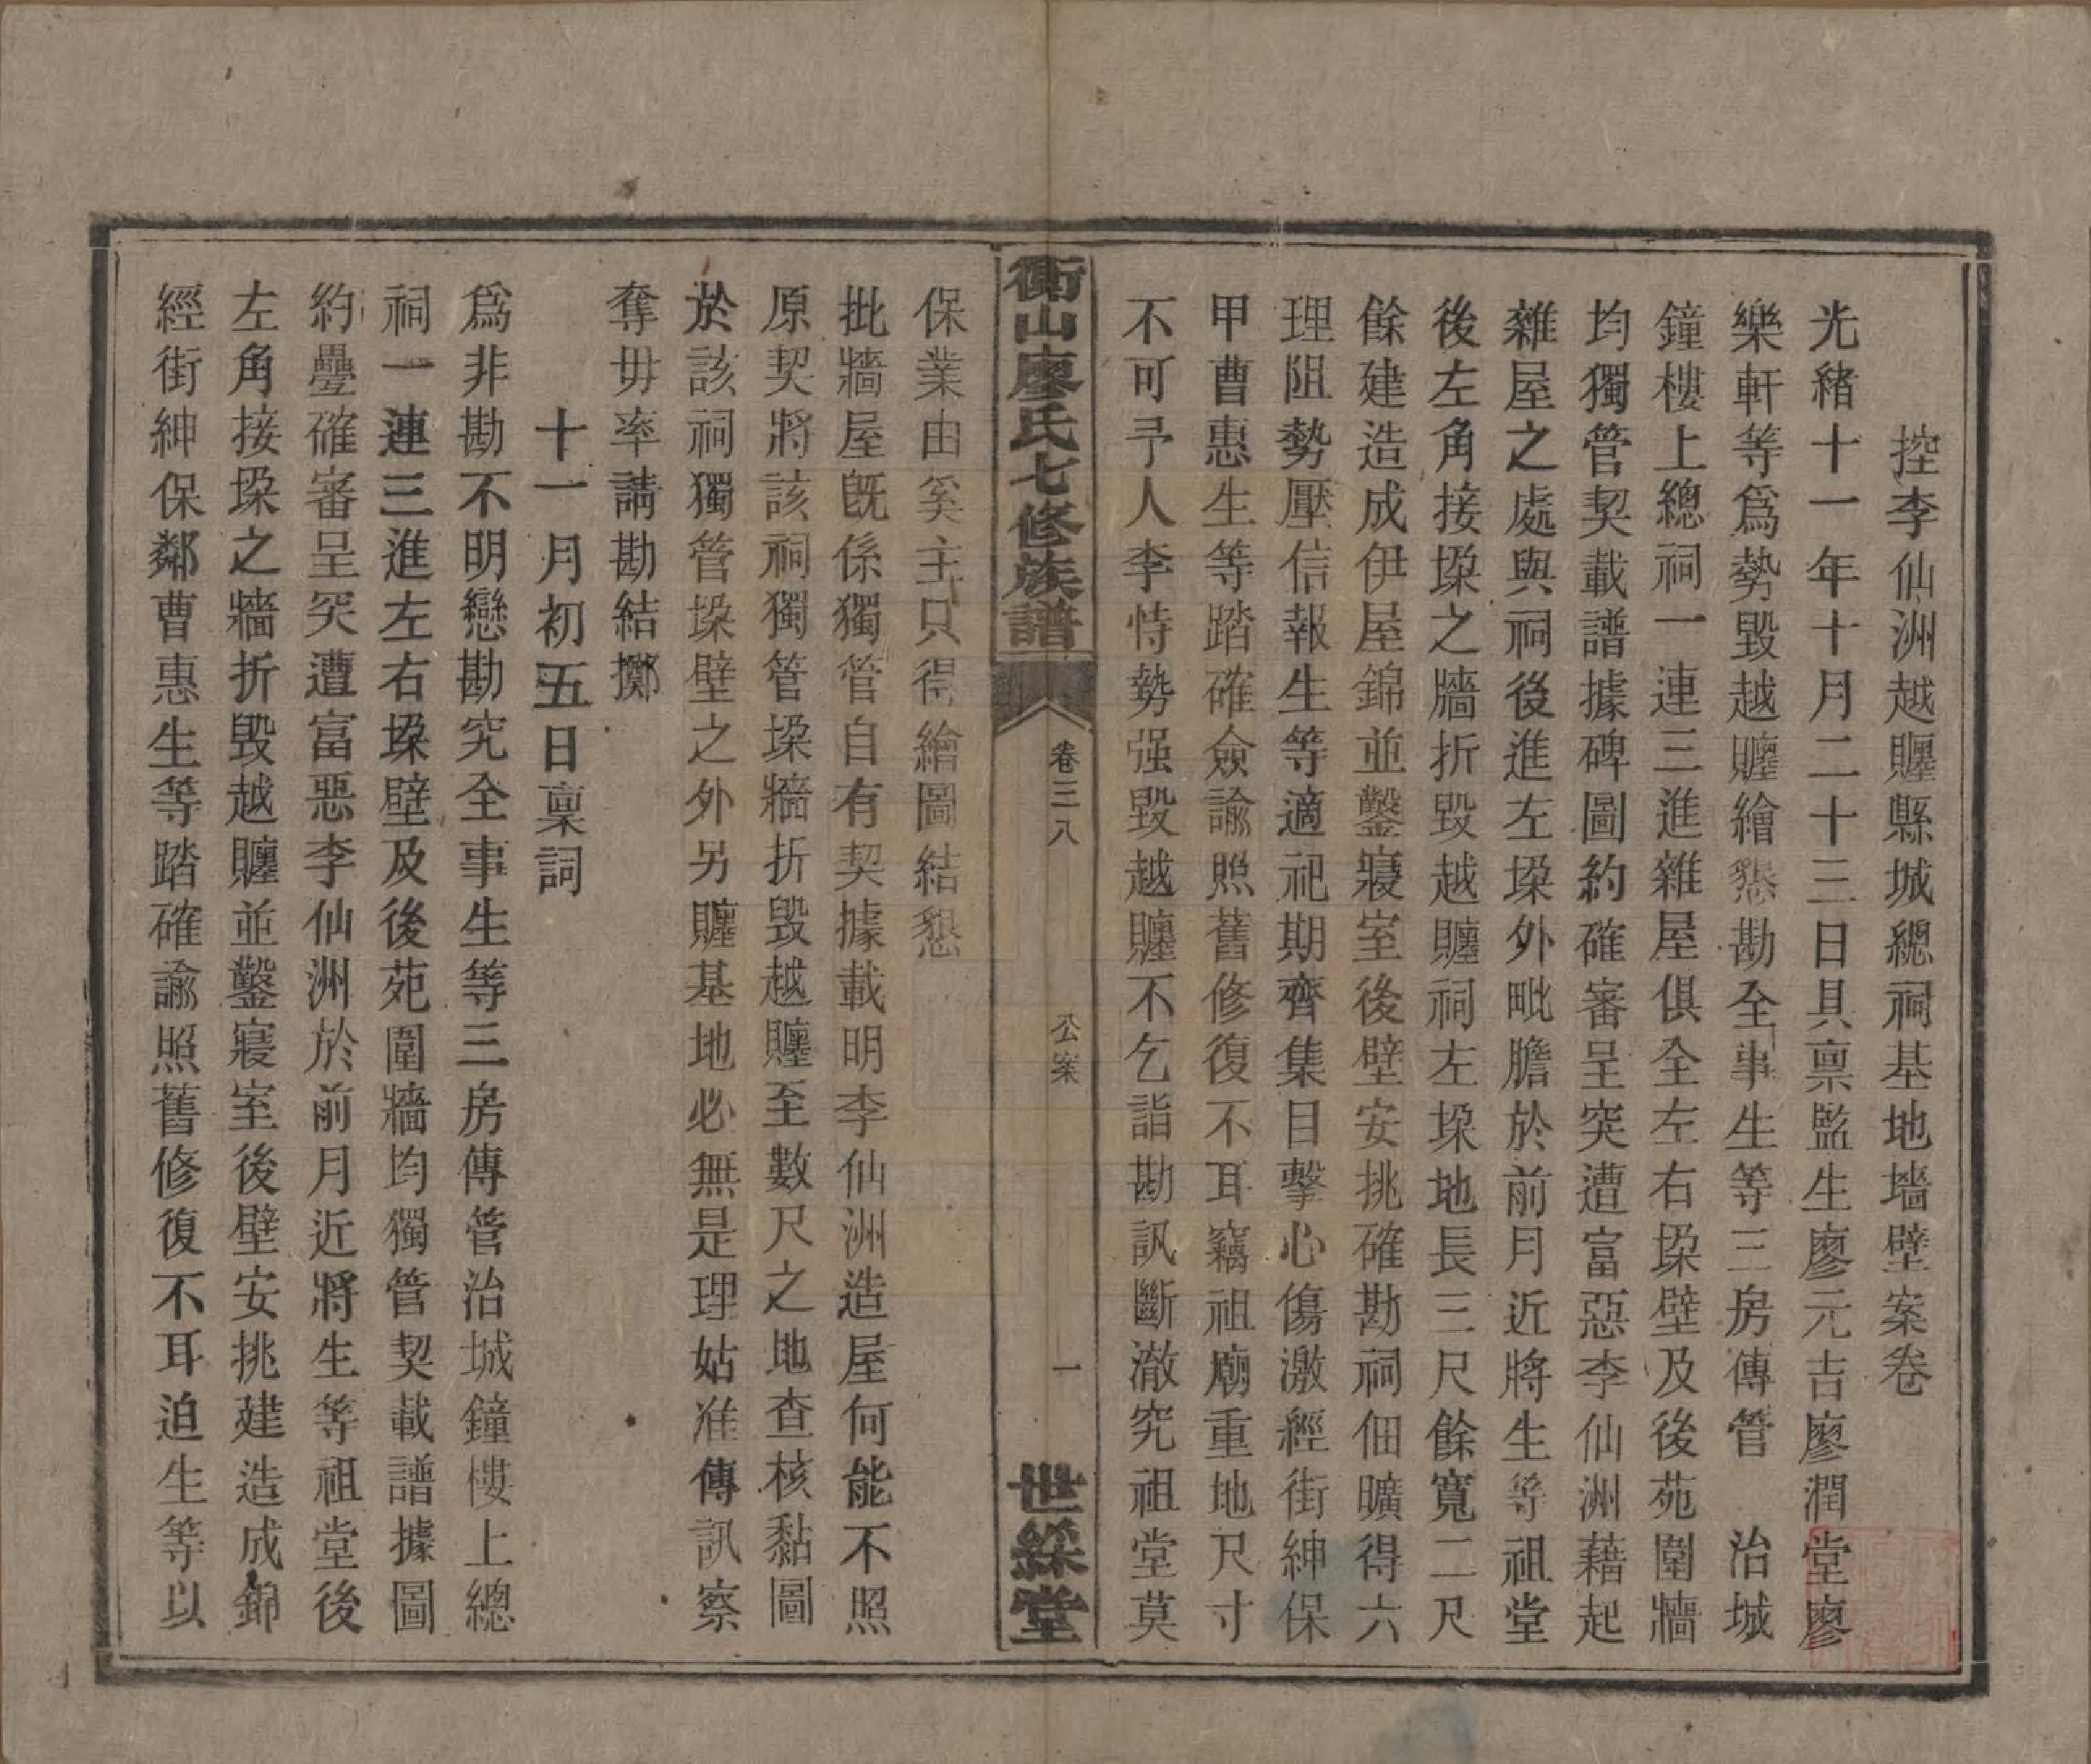 控李仙洲越贍縣城總祠基地墻壁案卷
光緒十一年十月二十三日具禀監生廖元吉廖潤堂廖
樂軒等爲勢毀越贍繪懇勘全事生等三房傳管　治城
鐘樓上總祠一連三進雜屋俱全左右垜壁及後苑圍牆
均獨管契載譜據碑圖約確審呈突遭富惡李仙洲藉起
雜屋之處與祠後進左垜外毗膽於前月近將生等祖堂
後左角接垜之牆折毀越贍祠左垜地長三尺餘寬二尺
餘建造成伊屋錦並鑿寢室後壁安挑確勘祠佃曠得六
理阻勢壓信報生等適祀期齊集目擊心傷激經街紳保
甲曹惠生等踏確僉諭照舊修復不耳竊祖廟重地尺寸
不可予人李恃勢强毀越贍不乞詣勘訊斷澈究祖堂莫
衡山廖氏七修族譜
卷三八
公案
一
世綵堂
保業由奚主只得繪圖結懇
批牆屋既係獨管自有契據載明李仙洲造屋何能不照
原契將該祠獨管垜牆折毀越贍至數尺之地查核黏圖
於該祠獨管垜壁之外另贍基地必無是理姑准傳訊察
奪毋率請勘結擲
十一月初五日稟詞
爲非勘不明戀勘究全事生等三房傳管治城鐘樓上總
祠一連三進左右垜壁及後苑圍牆均獨管契載譜據圖
約疊確審呈突遭富惡李仙洲於前月近將生等祖堂後
左角接垜之牆折毀越贍並鑿寢室後壁安挑建造成錦
經街紳保鄰曹惠生等踏確諭照舊修復不耳迫生等以